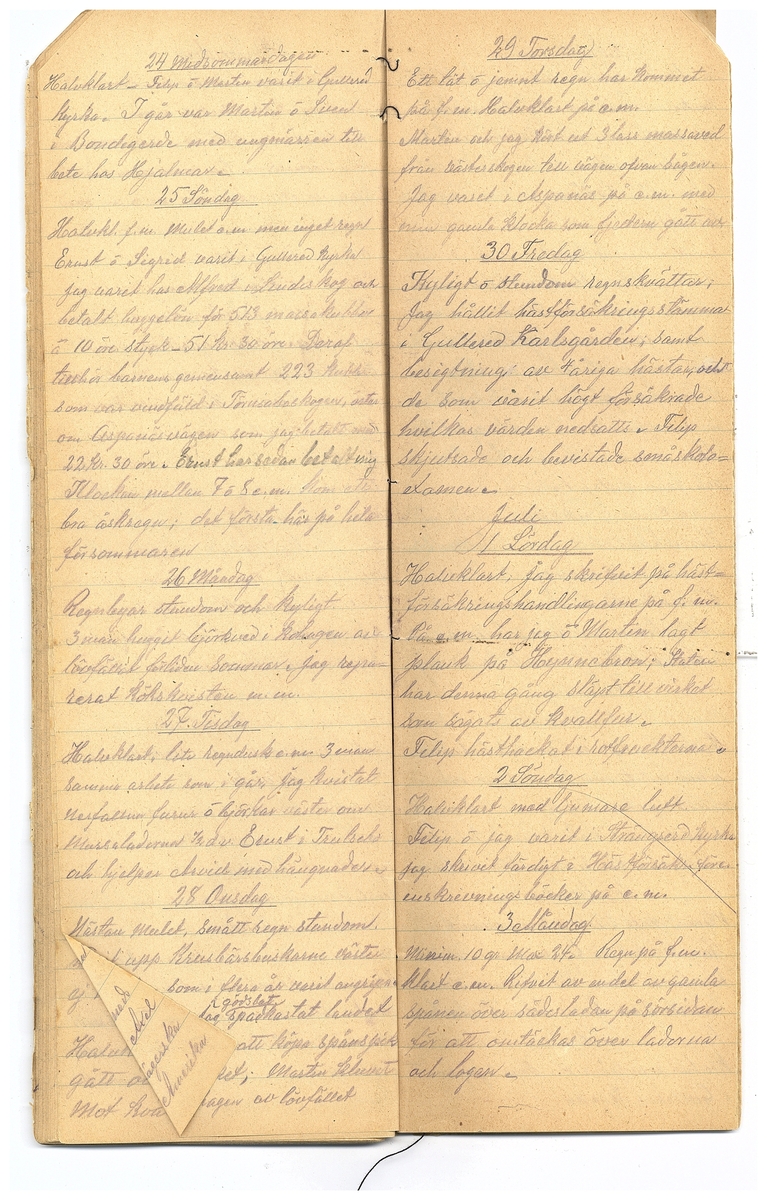 24 Midsommardagen
Halvklart – Filip ö Martin varit i Gullered
Kyrka. I går var Martin ö Sven
i Bondegerde med ungnässen till
bete hos Hjalmar.
25 Söndag
Halvkl. f.m. Mulet e.m. men inget regn
Ernst ö Sigrid varit i Gullered Kyrka
jag varit hos Alfred i Lindeskog och
betalt huggelön för 513 massakubbar
à 10 öre styck – 51 Kr. 30 öre. Deraf
tillhör barnens gemensamt 223 kubb
som var vindfäld i skogen, öster
om Aspanäsvägen som jag betalt med
22 Kr. 30 öre. Ernst har sedan betalt mig
Klockan mellan 7 ö 8 e.m. kom ett
bra åskregn; det första här på hela
försommaren
26 Måndag
Regnbyar stundom och kyligt
3 man huggit björkved i hagen av
lövfället förliden sommar. jag repa=
rerat Kökskvisten m.m.
27 Tisdag
Halvklart, lite regndusk e.m. 3 man
samma arbete som i går, jag kvistat
nerfallna furor ö björkar väster om
Ernst i
och hjelper Arvid med hängnader.
28 Onsdag
Nästan mulet, smått regn stundom.
upp Krusbärsbuskarne väster
som i flera år varit angripna
gödslat
jag spadkastat landet
Halv att köpa spånspik
gått Martin
Mot kva hagen av lövfället
med
Axel
Amerika
29 Torsdag
Ett tät ö jemnt regn har kommet
på f.m. Halvklart på e.m.
Martin och jag kört ut 3 lass massaved
från västerskogen till vägen ofvan
Jag varit i Aspanäs på e.m. med
min gamla klocka som fjedern gått av
30 Fredag
Kyligt ö stundom regnskvättar;
Jag hållit hästförsäkringsstämma
i Gullered Karlsgården; samt
besigtning av 4 åriga hästar, och
de som varit högt försäkrade
hvilkas värden nedsatts. Filip
skjutsade och bevistade småskole=
examen.
Juli
1 Lördag
Halvklart. Jag skrifvit på häst=
försäkringshandlingarne på f.m.
På e.m. har jag ö Martin lagt
plank på bron; Staten
har denna gång släpt till virket
som sågats av kvallfur.
Filip hästhackat i rotfrukterna.
2 Söndag
Halvklart med ljummare luft.
Filip ö jag varit i Strängserd Kyrka
jag skrivit färdigt i Hästförsäkr. före=
enskrevnings böcker på e.m.
3 Måndag
Minim. 10 gr. Max 24. Regn på f.m.
klart e.m. Rifvit av en del av gamla
spånen över sädesladan på sörsidan
för att omtäckas över ladorna
och logen.